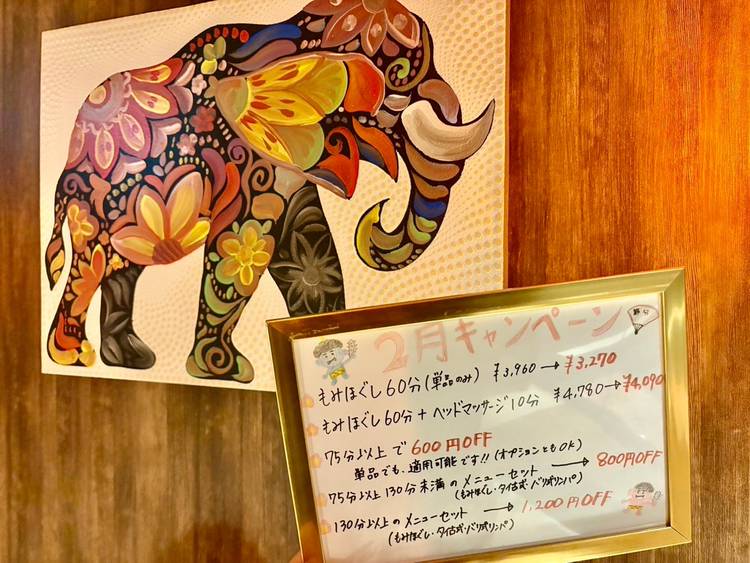 2月キャンペーン
節分
もみほぐし60分(単品のみ) ¥3,960→¥3,270
もみほぐし60分+ヘッドマッサージ10分 ¥4,780→¥4,090
75分以上で600円OFF
単品でも、適用可能です!!(オプションともOK)
75分以上130分未満のメニューセット→800円OFF
(もみほぐし・タイ古式・バリ式リンパ)
130分以上のメニューセット→1,200円OFF
(もみほぐし・タイ古式・バリ式リンパ)